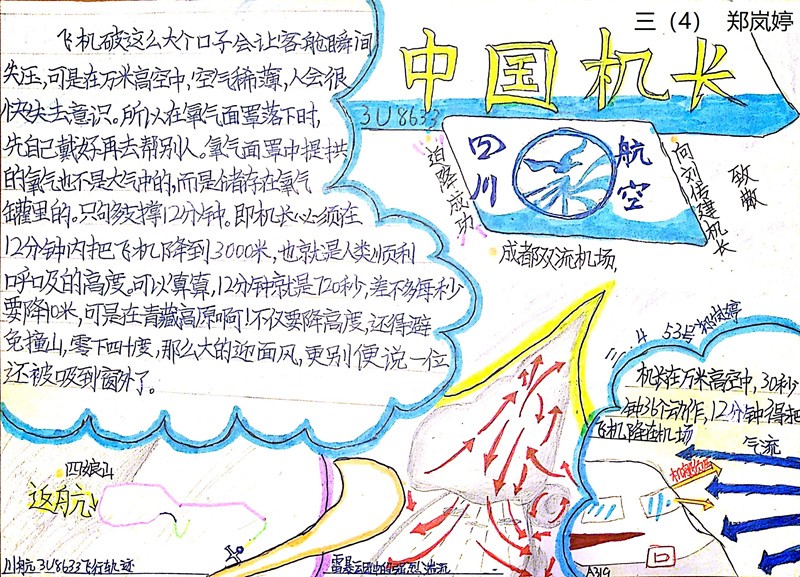 三（4） 郑岚婷
中国机长
3U8633
飞机破这么大个口子会让客舱瞬间
失压,可是在万米高空中,空气稀薄,人会很
快失去意识。所以在氧气面罩落下时,
先自己戴好再去帮别人。氧气面罩中提拱
的氧气也不是大气中的,而是储存在氧气
罐里的。只够支撑12分钟。即机长必须在
12分钟内把飞机降到3000米,也就是人类顺利
呼吸的高度。可以算算,12分钟就是720秒,差不多每秒
要降10米,可是在青藏高原啊!不仅要降高度,还得避
免撞山,零下四十度,那么大的迎面风,更别便说一位
还被吸到窗外了。
四川
航空
迫降成功
向刘传建机长
致敬
成都双流机场,
三 4 53号 郑岚婷
机长在万米高空中,30秒
钟36个动作,12分钟得把
飞机降在机场
气流
四姑山
返航
川航3U8633飞行轨迹
雷暴云团中的强烈湍流
A319